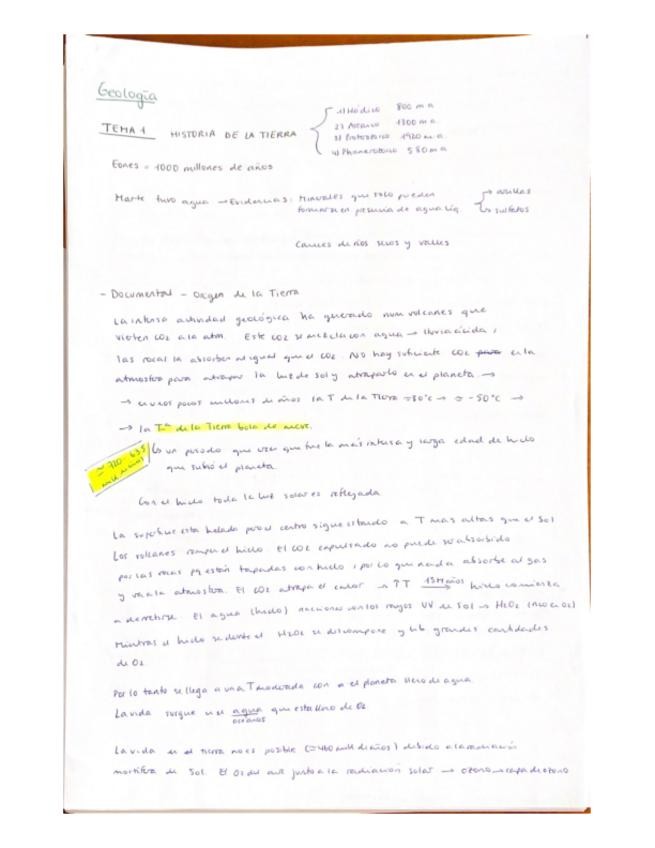 Geología
TEMA 1 HISTORIA DE LA TIERRA
1) Hádico 800 m.a
2) Arcaico 1300 m.a
3) Proterozoico 1920 m.a.
4) Phanerozoico 580 m.a
Eones = 1000 millones de años
Marte tuvo agua → Evidencias: Minerales que solo pueden → arcillas
formarse en presencia de agua líq → sulfatos
Cauces de ríos secos y valles
- Documental - Origen de la Tierra
La intensa actividad geológica ha generado num volcanes que
vierten CO2 a la atm. Este CO2 se mezcla con agua → lluvia ácida,
las rocas la absorben al igual que el CO2. NO hay suficiente CO2 en la
atmosfera para atrapar la luz de sol y atraparlo en el planeta →
→ en unos pocos millones de años la T de la Tierra → -50°C →
→ la T de la Tierra bola de nieve.
≈ 720-635
mill años
↳ un periodo que creen que fue la más intensa y larga edad de hielo
que sufrió el planeta.
Con el hielo toda la luz solar es reflejada
La superficie esta helada pero el centro sigue estando a T mas altas que el Sol
Los volcanes rompen el hielo. El CO2 expulsado no puede ser absorbido
por las rocas pq están tapadas con hielo, por lo que nada absorbe al gas
y va a la atmosfera. El CO2 atrapa el calor → ↑T 15M años → hielo comienza
a derretirse. El agua (hielo) reacciona con los rayos UV de Sol → H2O2
Mientras el hielo se derrite el H2O2 se descompone y lib grandes cantidades
de O2
Por lo tanto se llega a una T moderada con el planeta lleno de agua.
La vida surge en el agua que esta lleno de O2
océanos
La vida en la tierra no es posible (≈460 mill de años) debido a la radiación
mortífera de Sol. El O2 del aire junto a la radiación solar → ozono → capa de ozono